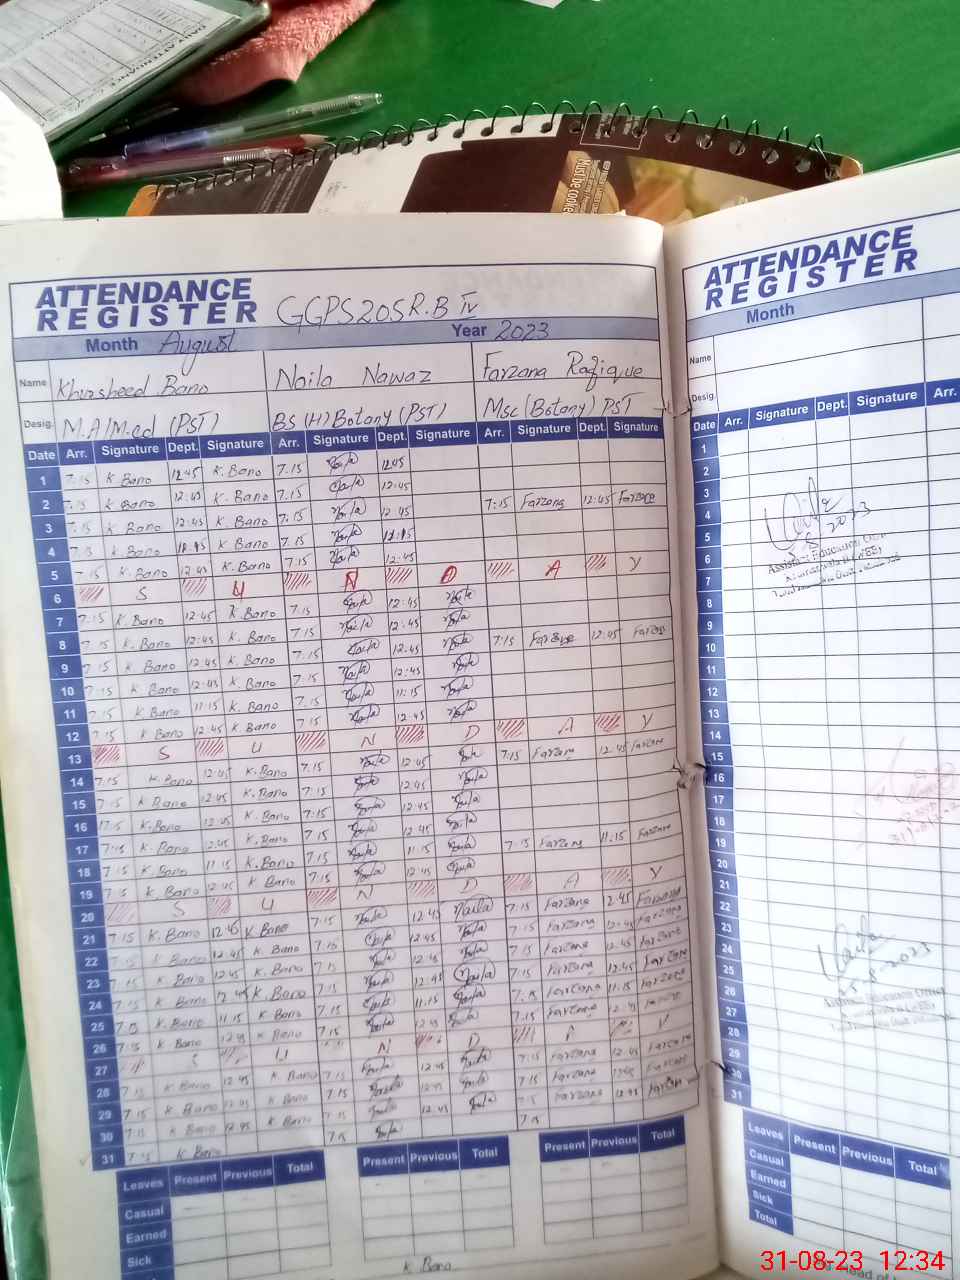 DAILY ATTENDANCE
Must be cooked
ATTENDANCE
REGISTER
GGPS205R.B IV
Month August Year 2023
Name Khursheed Bano Naila Nawaz Farzana Rafique
Desig. M.A/M.ed (PST) BS(H)Botany(PST) Msc(Botany) PST
Date Arr. Signature Dept. Signature Arr. Signature Dept. Signature Arr. Signature Dept. Signature
1 7:15 K Bano 12:45 K. Bano 7:15 Naila 12:45
2 7:15 K Bano 12:45 K. Bano 7:15 Naila 12:45 7:15 Farzana 12:45
3 7:15 K Bano 12:45 K. Bano 7:15 Naila 12:45
4 7:15 K Bano K. Bano 7:15 Naila
5 7:15 K Bano 12:45 K. Bano 7:15 Naila 12:45
6 S U N D A Y
7 7:15 K Bano 12:45 K. Bano 7:15 Naila 12:45 Naila
8 7:15 K Bano 12:45 K. Bano 7:15 Naila 12:45 Naila 7:15 12:45
9 7:15 K Bano 12:45 K. Bano 7:15 Naila 12:45 Naila
10 7:15 K Bano 12:45 K. Bano 7:15 Naila 12:45 Naila
11 7:15 K Bano 11:15 K. Bano 7:15 Naila 11:15 Naila
12 7:15 K Bano 12:45 K Bano 7:15 Naila 12:45 Naila
13 S U N D A Y
14 7:15 K. Bano 12:45 K. Bano 7:15 Naila 12:45 7:15 Farzana 12:45 Farzana
15 7:15 K Bano 12:45 K. Bano 7:15 Naila 12:45 Naila
16 K. Bano 12:45 K. Bano 7:15 Naila 12:45 Naila
17 7:15 K Bano 12:45 K. Bano 7:15 Naila 12:45 Naila
18 7:15 K Bano 11:15 K. Bano 7:15 Naila 11:15 Naila 7:15 Farzana 11:15 Farzana
19 7:15 K Bano 12:45 K Bano 7:15 Naila 12:45 Naila
20 S U N D A Y
21 7:15 K. Bano 12:45 K Bano 7:15 Naila 12:45 Naila 7:15 Farzana 2:45 Farzana
22 7:15 K. Bano 12:45 K. Bano 7:15 Naila 12:45 Naila 7:15 Farzana 12:45 Farzana
23 7:15 K Bano 12:45 K. Bano 7:15 Naila 12:45 Naila 7:15 Farzana 12:45 Farzana
24 7:15 K Bano 12:45 K. Bano 7:15 Naila 12:45 Naila 7:15 Farzana 12:45 Farzana
25 7:15 K. Bano 11:15 K Bano 7:15 Naila 11:15 Naila 7:15 Farzana 11:15 Farzana
26 7:15 K Bano 12:45 K Bano 7:15 Naila 12:45 Naila 7:15 Farzana 12:45
27 S U N D Y
28 7:15 K Bano 12:45 K Bano 7:15 Naila 12:45 Naila 7:15 Farzana 12:45 Farzana
29 7:15 K Bano 12:45 K Bano 7:15 Naila 12:45 Naila 7:15 Farzana Farzana
30 7:15 K Bano 12:45 K Bano 7:15 Naila 12:45 Naila 7:15 Farzana 12:45 Farzana
31 7:15 K Bano 7:15 Naila 7:15
Leaves Present Previous Total Present Previous Total Present Previous Total
Casual
Earned
Sick
K Bano
ATTENDANCE
REGISTER
Month
Name
Desig.
Date Arr. Signature Dept. Signature Arr.
1
2
3
4
5
6
7
8
9
10
11
12
13
14
15
16
17
18
19
20
21
22
23
24
25
26
27
28
29
30
31
5.8.2023
Assistant Education
25.8.2023
Education Officer
Leaves Present Previous Total
Casual
Earned
Sick
Total
31-08-23 12:34